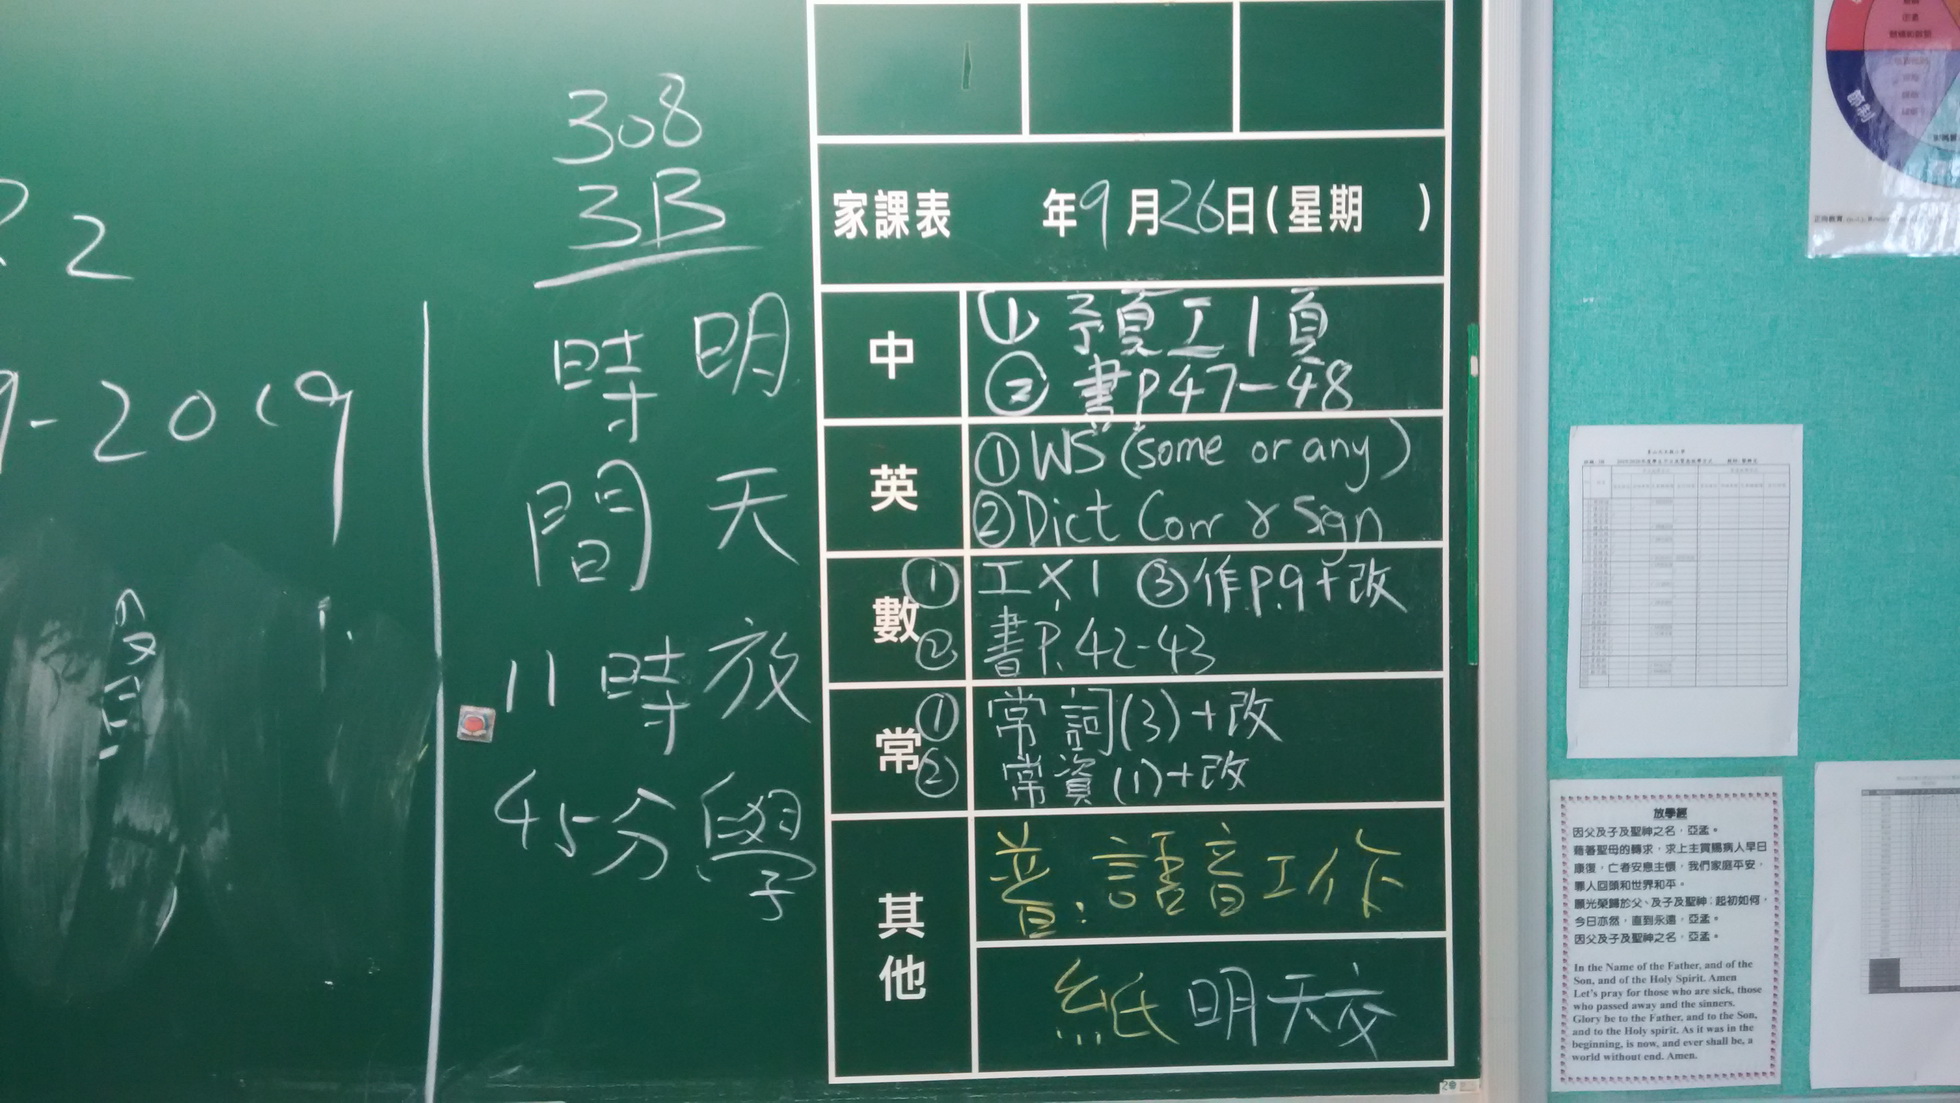 2
9-2019
308
3B
明天放學
時間
11時
45分
家課表 年9月26日(星期 )
中
① 預工1頁
② 書P47-48
英
① WS (some or any)
② Dict Corr & Sign
數
① 工X1 ③作P.9+改
② 書P.42-43
常
① 常詞(3)+改
② 常資(1)+改
其他
普:語音工作
紙 明天交
節制
放學經
因父及子及聖神之名,亞孟。
藉著聖母的轉求,求上主賞賜病人早日
康復,亡者安息主懷,我們家庭平安,
罪人回頭和世界和平。
願光榮歸於父、及子及聖神;起初如何,
今日亦然,直到永遠,亞孟。
因父及子及聖神之名,亞孟。
In the Name of the Father, and of the
Son, and of the Holy Spirit. Amen
Let's pray for those who are sick, those
who passed away and the sinners.
Glory be to the Father, and to the Son,
and to the Holy spirit. As it was in the
beginning, is now, and ever shall be, a
world without end. Amen.